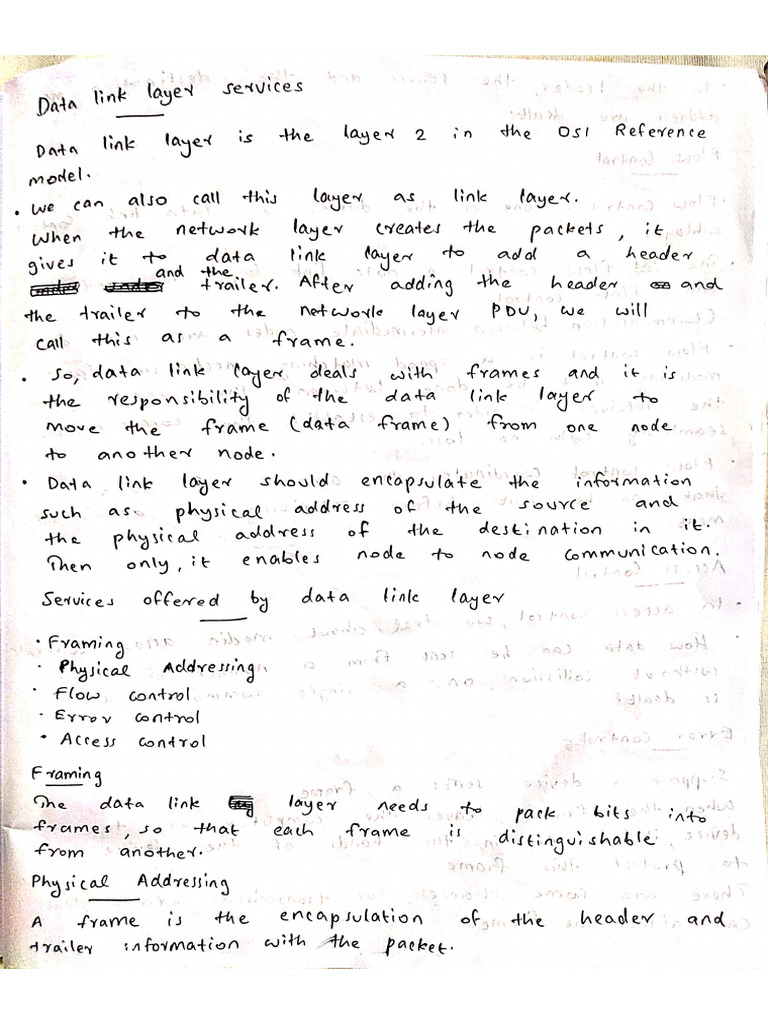 Data link layer services
Data link layer is the layer 2 in the OSI Reference
model.
• We can also call this layer as link layer.
When the network layer creates the packets, it
gives it to data link layer to add a header
and the trailer. After adding the header and
the trailer to the network layer PDU, we will
call this as a frame.
• So, data link layer deals with frames and it is
the responsibility of the data link layer to
move the frame (data frame) from one node
to another node.
• Data link layer should encapsulate the information
such as physical address of the source and
the physical address of the destination in it.
Then only, it enables node to node communication.
Services offered by data link layer
• Framing
• Physical Addressing
• Flow control
• Error control
• Access control
Framing
The data link layer needs to pack bits into
frames, so that each frame is distinguishable
from another.
Physical Addressing
A frame is the encapsulation of the header and
trailer information with the packet.